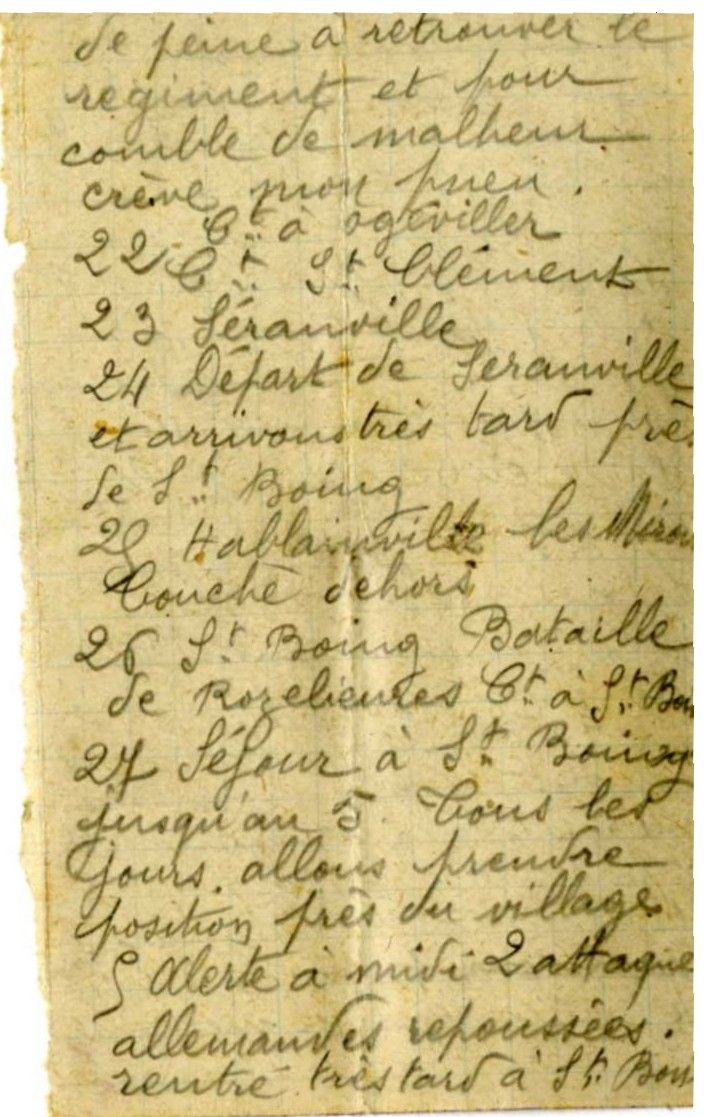 de peine à retrouver le
regiment et pour
comble de malheur
crève mon pneu.
Ct à ogéviller
22 Ct St Clément
23 Séranville
24 Départ de Seranville
et arrivons très tard près
de St Boing
25 Hablainville les
Couché dehors
26 St Boing Bataille
de Rozelieures Ct à St Boin
27 Séjour à St Boing
jusqu'au 5. Tous les
jours. allons prendre
position près du village
5 Alerte à midi 2 attaque
allemandes repoussées.
rentré très tard à St Boin